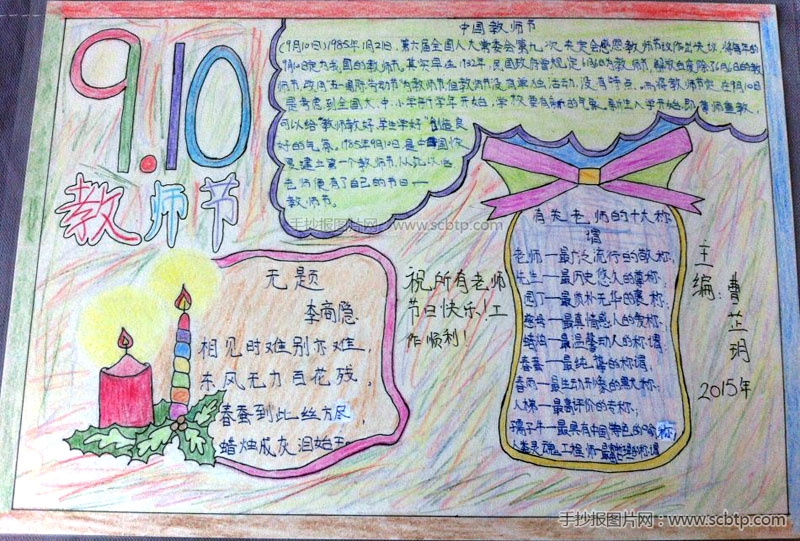 9.10
教师节
中国教师节
(9月10日)1985年1月21日,第六届全国人大常委会第九次
9月10日定为我国的教师节。其实早在1932年,民国政府曾规定6月6日为教师节,解放后废除了6月6日的教
师节,改用五一国际劳动节为教师节,但教师节没有单独活动,没有特点。而将教师节定在9月10日
是考虑到全国大、中、小学新学年开始,学校要有新的气象。新生入学开始,即尊师重教,
可以给"教师教好,学生学好"创造良
好的气氛。1985年9月10日是中国恢
复建立第一个教师节,从此以后
老师便有了自己的节日—
教师节。
无题
李商隐
相见时难别亦难,
东风无力百花残。
春蚕到此丝方尽,
蜡烛成灰泪始干
祝所有老师
节日快乐!工
作顺利!
有关老师的十大称
谓
老师—最广泛流行的敬称;
先生—最历史悠久的尊称;
园丁—最质朴无华的褒称;
慈母—最真情感人的爱称;
蜡烛—最温馨动人的称谓
春蚕—最纯 的称谓;
春雨—最生动形象的 称;
人梯—最高评价的专称;
孺子牛—最具有中国特色的喻称;
人类灵魂工程师—最 的称谓
主编:曹芷玥
2015年
手抄报图片网:www.scbtp.com
手抄报图片网:www.scbtp.com